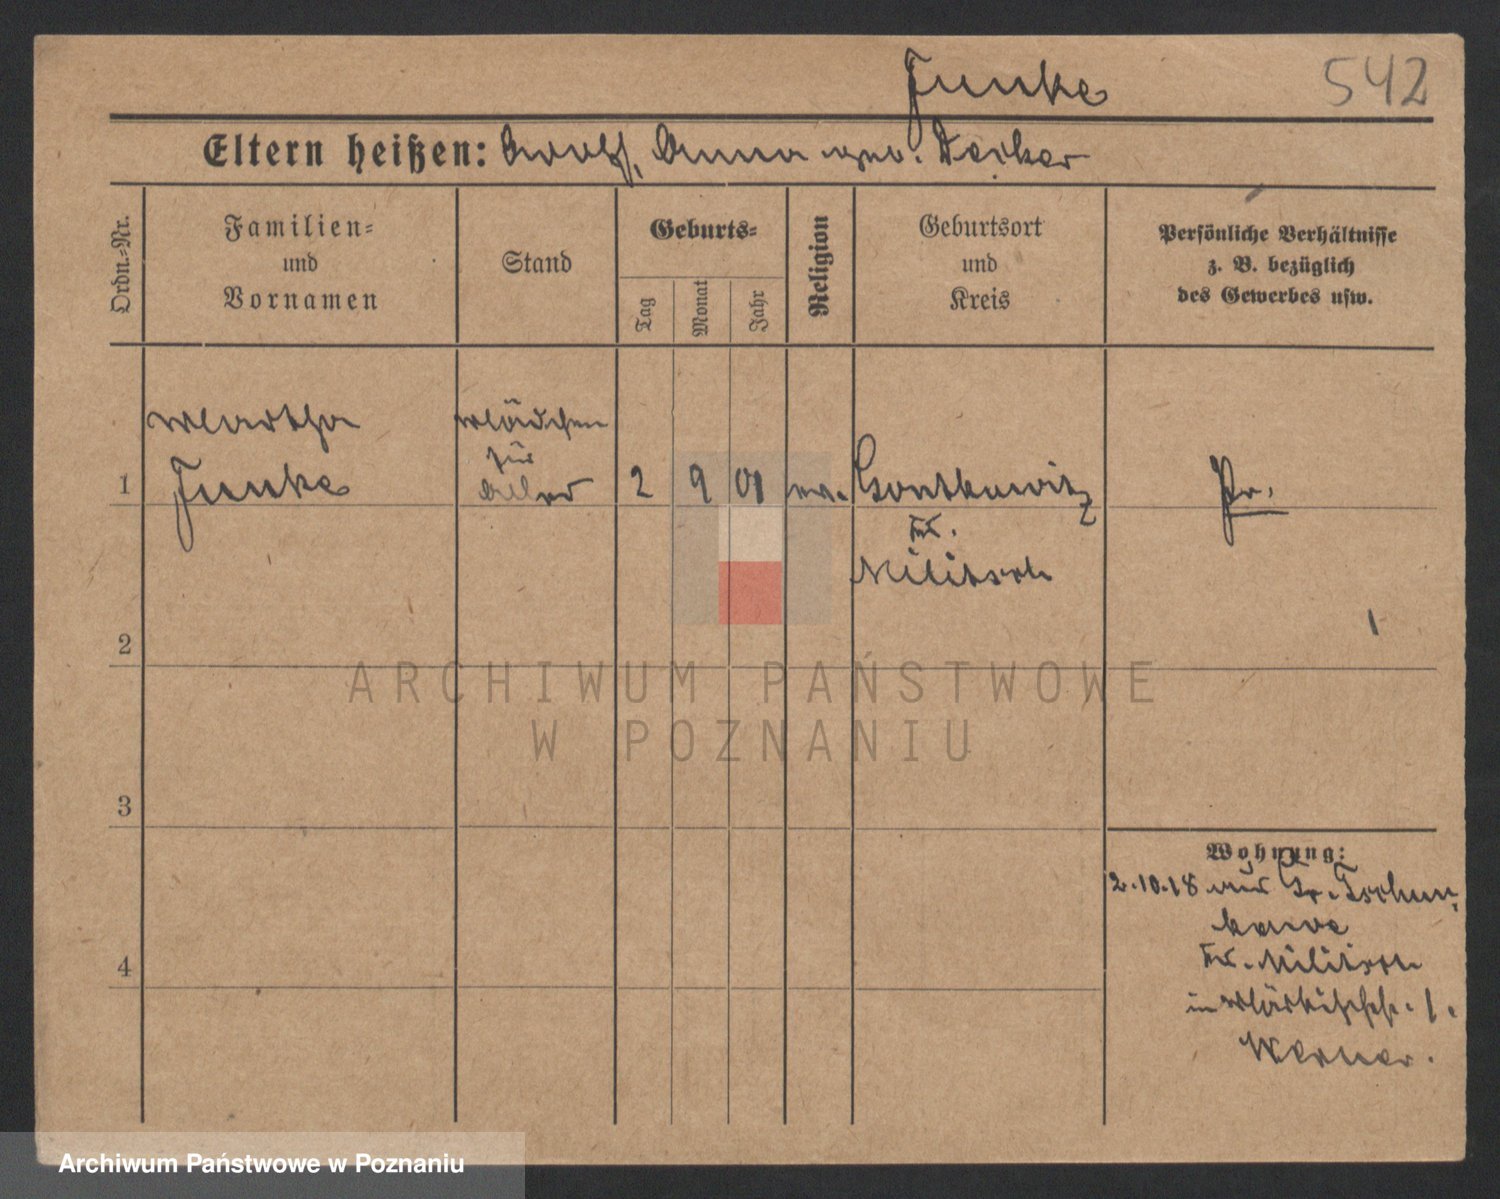 Funke
542
Eltern heißen: Adolf, Anna geb. Decker
Ordn.-Nr.
Familien-
und
Vornamen
Stand
Geburts-
Tag
Monat
Jahr
Religion
Geburtsort
und
Kreis
Persönliche Verhältnisse
z. B. bezüglich
des Gewerbes usw.
1
Martha
Funke
Mädchen
für
Alles
2
9
01
ev.
Gontkowitz
Kr.
Militsch
Pr.
2
3
4
Wohnung:
2.10.18 aus Gr. Tschun-
kawe
Kr. Militsch
in
Werner.
ARCHIWUM PAŃSTWOWE
W POZNANIU
Archiwum Państwowe w Poznaniu